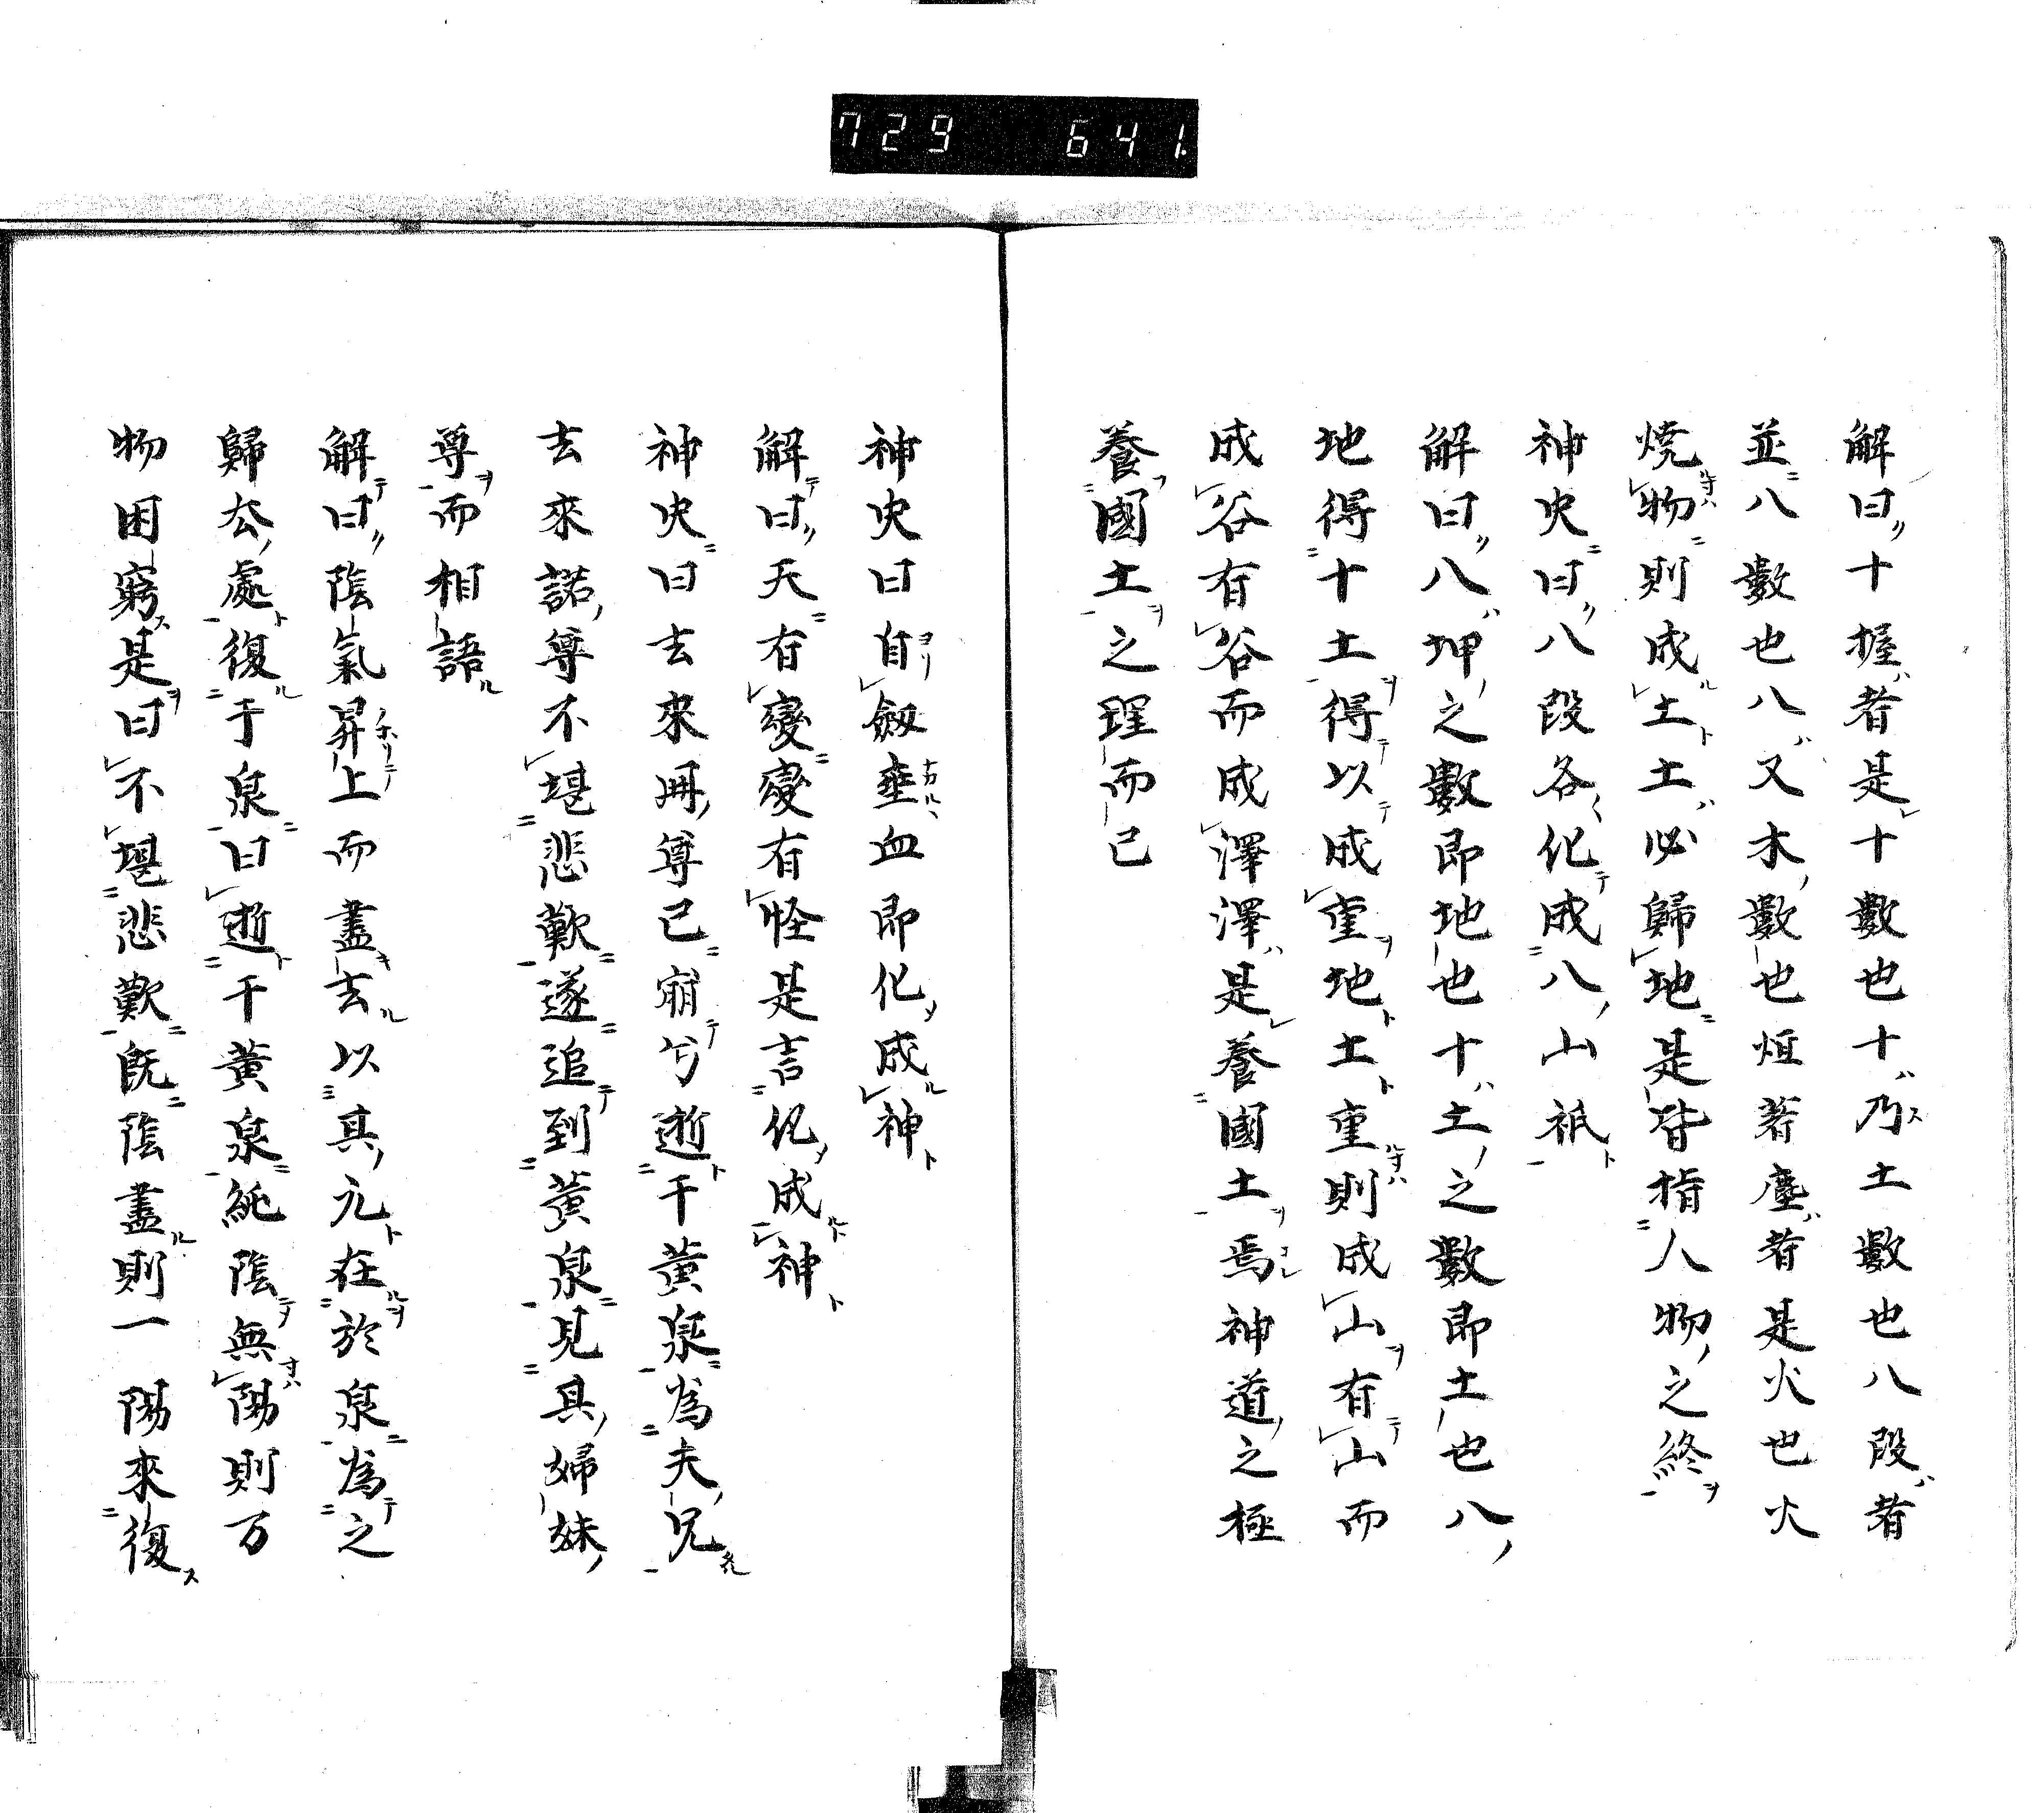 729 641.
解曰十握者是十數也十乃土數也八段者
並八數也八又木數也烜若塵者是火也火
燒物則成土土必歸地是皆指人物之終
神史曰八段各化成八山祇
解曰八坤之數即地也十土之數即土也八
地得十土得以成重地土重則成山有山而
成谷有谷而成澤澤是養國土焉神道之極
養國土之理而已
神史曰自劔垂血即化成神
解曰天有變變有怪是言化成神
神史曰去來冊尊已崩兮逝于黃泉為夫兄
去來諾尊不堪悲歎遂追到黃泉見其婦妹
尊而相語
解曰陰氣昇上而盡去以其元在於泉為之
歸本處復于泉曰逝于黃泉純陰無陽則万
物困窮是曰不堪悲歎既陰盡則一陽來復